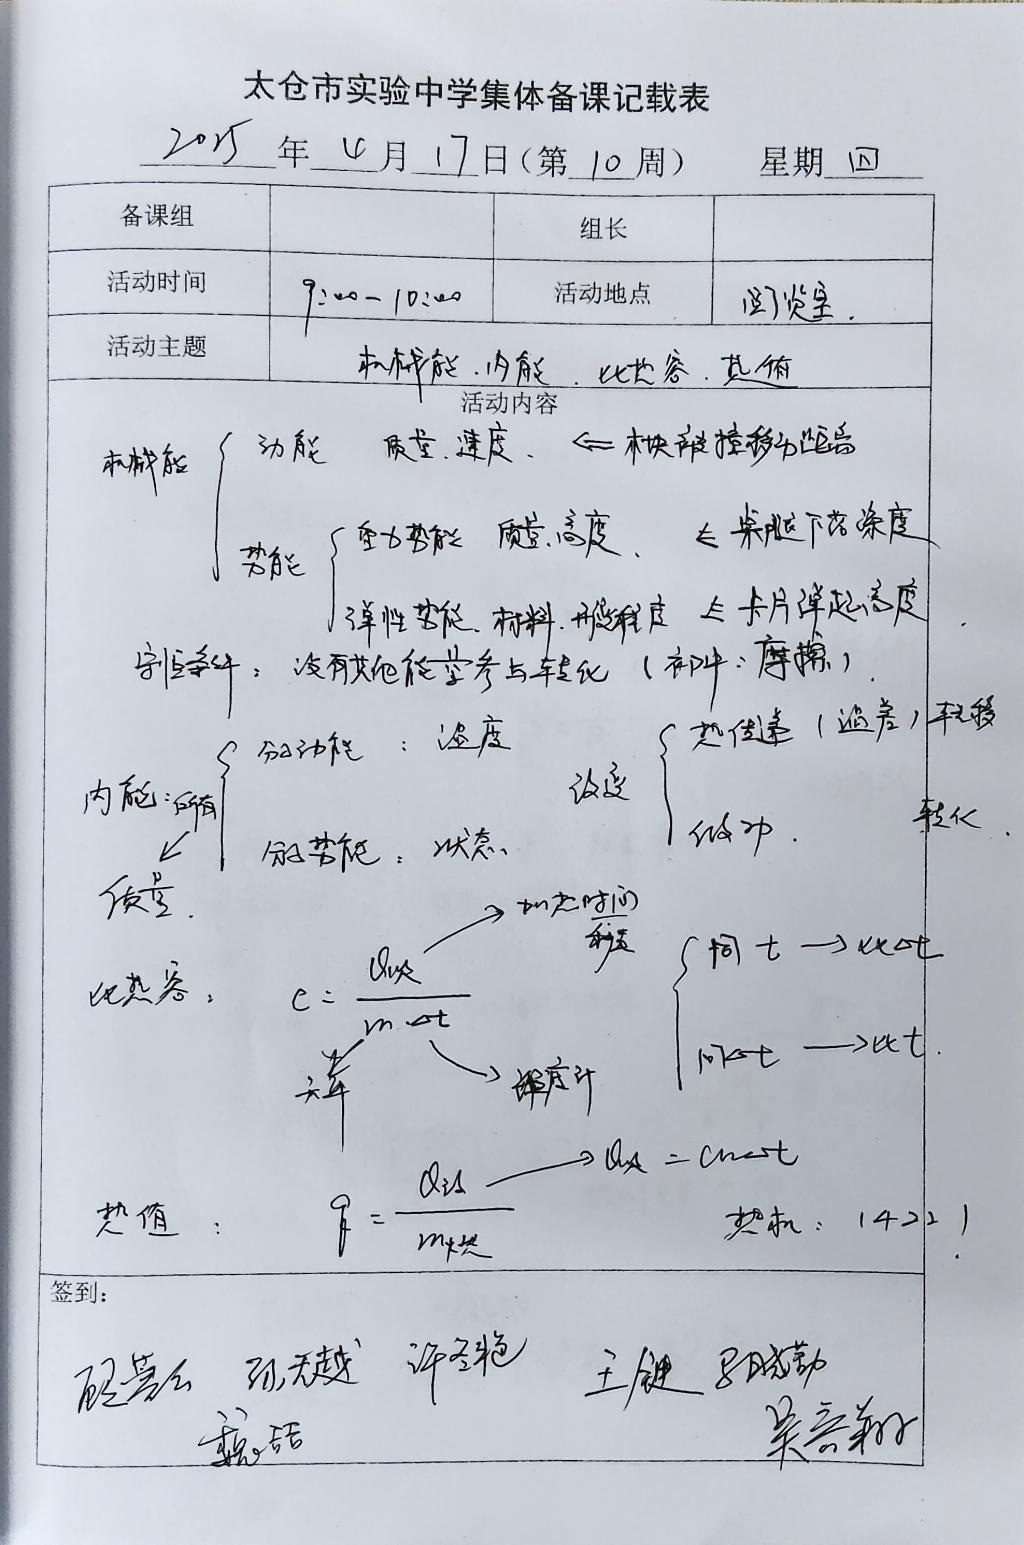 太仓市实验中学集体备课记载表
2025年4月17日(第10周) 星期四
备课组 组长
活动时间 9:00-10:00 活动地点 阅览室.
活动主题 机械能.内能.比热容.热值
活动内容
机械能
动能 质量.速度. ⇐ 木块被撞移动距离
势能
重力势能 质量.高度. ⇐ 桌腿下落深度
弹性势能. 材料.形变程度 ⇐ 卡片弹起高度.
守恒条件: 没有其他能量参与转化 (初中:摩擦).
内能:所有
分子动能 : 温度
分子势能 : 状态.
质量.
改变
热传递 (温差) 转移
做功. 转化.
比热容: c = Q吸 / m·Δt
加热时间
天平
温度计
相同 t → 比Δt
相同Δt → 比t.
热值 : q = Q放 / m燃
Q吸 = cmΔt
热机: 1422!
签到:
许冬艳 王健